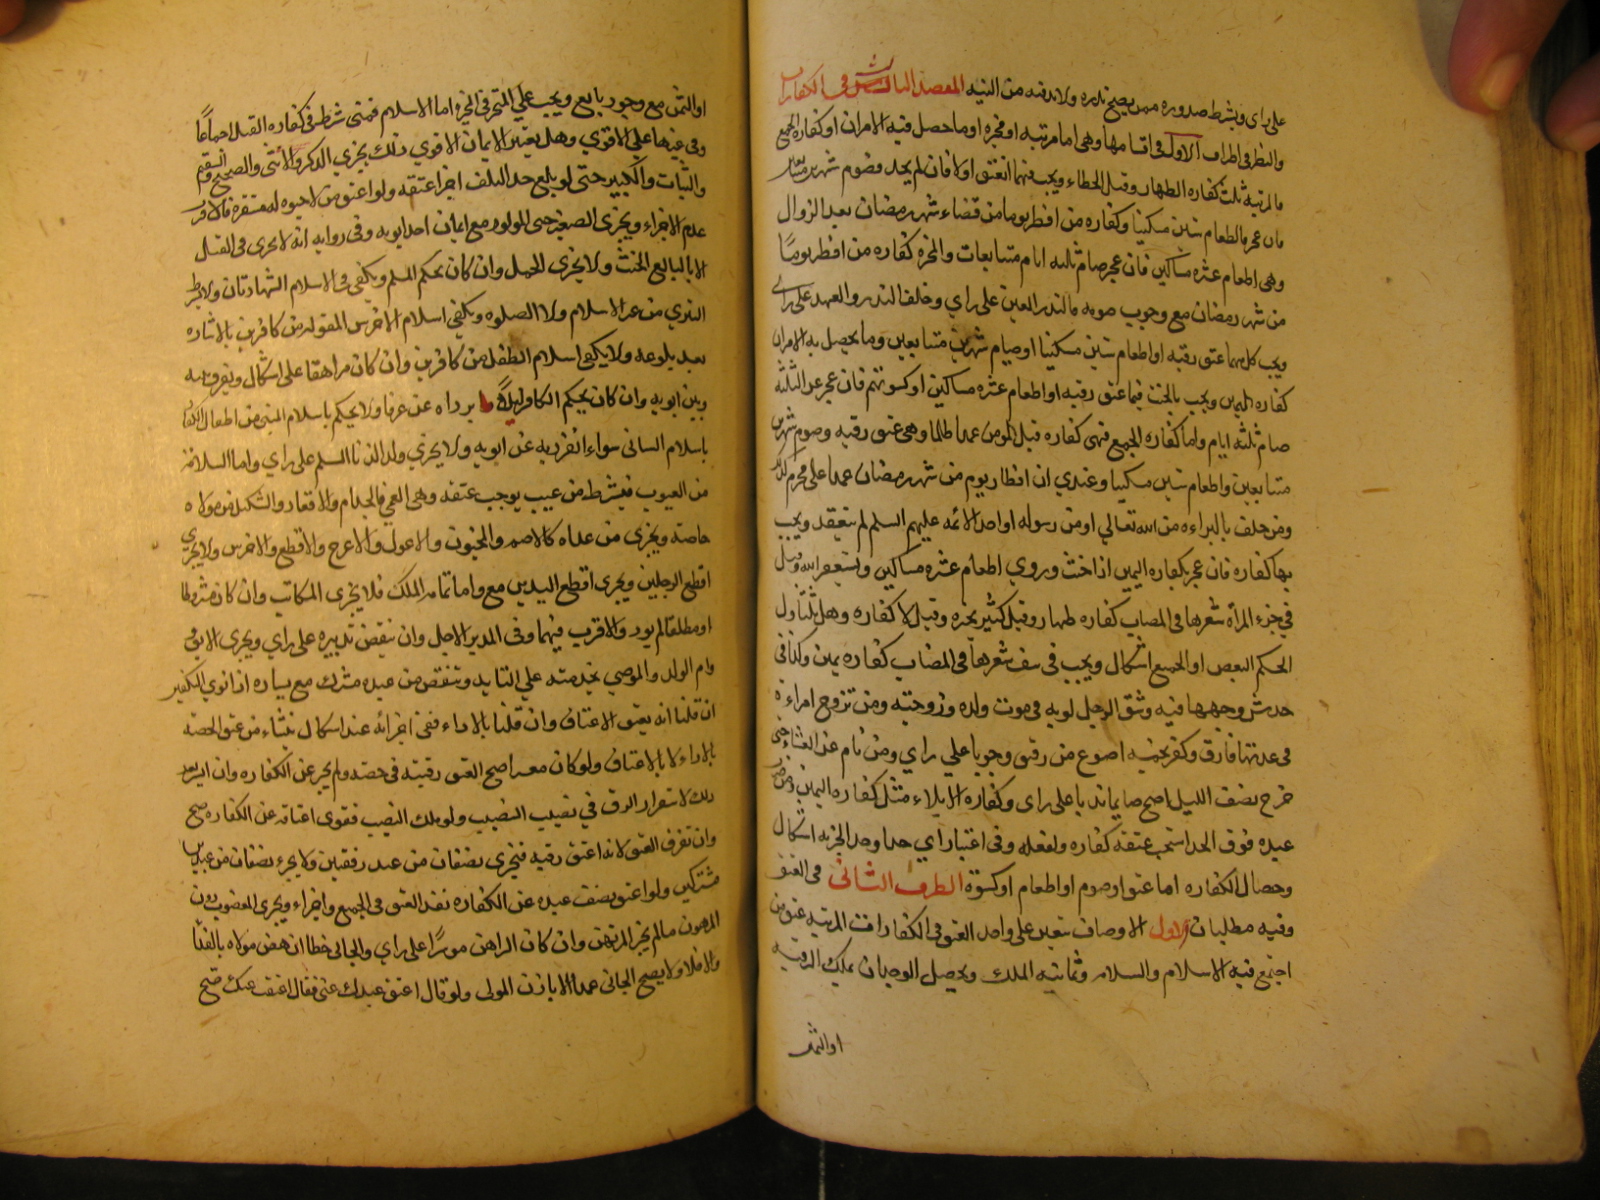 على راى ويشرط صدوره ممن يصح نذره ولابد فيه من النيه المقصد الثالث فى الكفارات
والنظر فى اطراف الاول فى اقسامها وهى اما مرتبه او مخيره او ما حصل فيه الامران او كفاره الجمع
فالمرتبه ثلث كفاره الظهار وقتل الخطاء ويجب فيهما العتق اولا فان لم يجد فصوم شهرين متتابعين
فان عجز فاطعام ستين مسكينا وكفاره من افطر يوما من قضاء شهر رمضان بعد الزوال
وهى اطعام عشره مساكين فان عجز صام ثلثه ايام متتابعات والمخيره كفاره من افطر يوما
من شهر رمضان مع وجوب صومه فالنذر المعين على راي وخلف النذر والعهد على راي
ويجب كل منهما عتق رقبه او اطعام ستين مسكينا او صيام شهرين متتابعين وما يحصل به الامران
كفاره اليمين ويجب بالحنث فيها عتق رقبه او اطعام عشره مساكين او كسوتهم فان عجز عن الثلثه
صام ثلثه ايام واما كفاره الجمع فهى كفاره قتل المومن عمدا ظلما وهى عتق رقبه وصوم شهرين
متتابعين واطعام ستين مسكينا وعندي ان افطار يوم من شهر رمضان عمدا على محرم كذلك
ومن حلف بالبراءه من الله تعالي او من رسوله او احد الائمه عليهم السلم لم ينعقد ويجب
بها كفاره فان عجز بكفاره اليمين اذا حنث وروي اطعام عشره مساكين ويستغفر الله وقيل
في جز المراه شعرها فى المصاب كفاره ظهار وقيل كبيره مخيره وقيل لا كفاره وهل يتناول
الحكم البعض او الجميع اشكال ويجب فى نتف شعرها فى المصاب كفاره يمين وكذا فى
خدش وجهها فيه وشق الرجل ثوبه فى موت ولده وزوجته ومن تزوج امراءه
فى عدتها فارق وكفر بخمسه اصوع من دقيق وجوبا على راي ومن نام عن العشاء حتى
خرج نصف الليل اصبح صايما ندبا على راى وكفاره الايلاء مثل كفاره اليمين ومن ضرب
عبده فوق الحد استحب عتقه كفاره ولفعله وفى اعتبار اي حد او حد الحريه اشكال
وخصال الكفاره اما عتق او صوم او اطعام او كسوة الطرف الثانى فى العتق
وفيه مطلبان الاول الاوصاف يتعين على واجد العتق فى الكفارات المرتبه عتق من
اجتمع فيه الاسلام والسلامه وتماميه الملك ويحصل الوجدان بملك الرقبه
او الثمن
او الثمن مع وجود بايع ويجب علي المتحر فى الخيره اما الاسلام فمتى شرط فى كفاره القتل اجماعاً
وفى غيرها على الاقوي وهل يعتبر الايمان الاقوي ذلك يجزي الذكر والانثى والصحيح والسقيم
علم الاجزاء ويجزى الصغير حتى المولود مع ايمان احد ابويه وفى روايه انه لا يجزى فى القتل
الا البالغ الحنث ولا يجزى الحمل وان كان بحكم المسلم ويكفى فى الاسلام الشهادتان ولا يشترط
التبري من غير الاسلام ولا الصلوه ويكفي اسلام الاخرس المتولد من كافرين بالاشاره
بعد بلوغه ولا يكفى اسلام الطفل من كافرين وان كان مراهقا على اشكال ويفرق بينه
وبين ابويه وان كان بحكم الكافر ليلاً يرداه عن عزمه ولا يحكم باسلام المسبى من اطفال الكفار
باسلام السابى سواء انفرد به عن ابويه ولا يجزي ولد الزنا المسلم على راي واما السلامه
من العيوب فيشرط من عيب يوجب عتقه وهى العمى والجذام والاقعاد والتنكيل من مولاه
خاصه ويجزى من عداه كالاصم والمجنون والاعور والاعرج والاقطع والاخرس ولا يجزي
اقطع الرجلين ويجزى اقطع اليدين مع واما تماميه الملك فلا يجزى المكاتب وان كان مشروطا
او مطلقا لم يود والاقرب فيهما وفى المدبر الاجل وان لم ينقض تدبيره على راي ويجزى الابق
وام الولد والموصي بخدمته علي التابيد وشقص من عبده مشترك مع يساره اذا نوي التكفير
ان قلنا انه يعتق بالاعتاق وان قلنا بالاداء ففى اجزائه عند اشكال ينشاء من عتق الحصه
بالاداء لا بالاعتاق ولو كان معسرا صح العتق رقبته فى حصته ولم يجز عن الكفاره وان ايسر بعد
ذلك لاستقرار الرق في نصيب الشريك ولو ملك النصيب فنوى اعتاقه عن الكفاره صح
وان تفرق العتق لانه اعتق رقبه فيجزى نصفان من عبد دفعتين ولا يجزء نصفان من عبدين
مشتركين ولو اعتق نصف عبده عن الكفاره نفذ العتق فى الجميع واجزاء ويجزى المغصوب دون
المرهون مالم يجز المرتهن وان كان الراهن موسرًا على راي والجانى خطا ان نهض مولاه بالفداء
والا فلا ولا يصح الجانى عمدا الا باذن المولى ولو قال اعتق عبدك عنى فقال اعتقت عنك صح